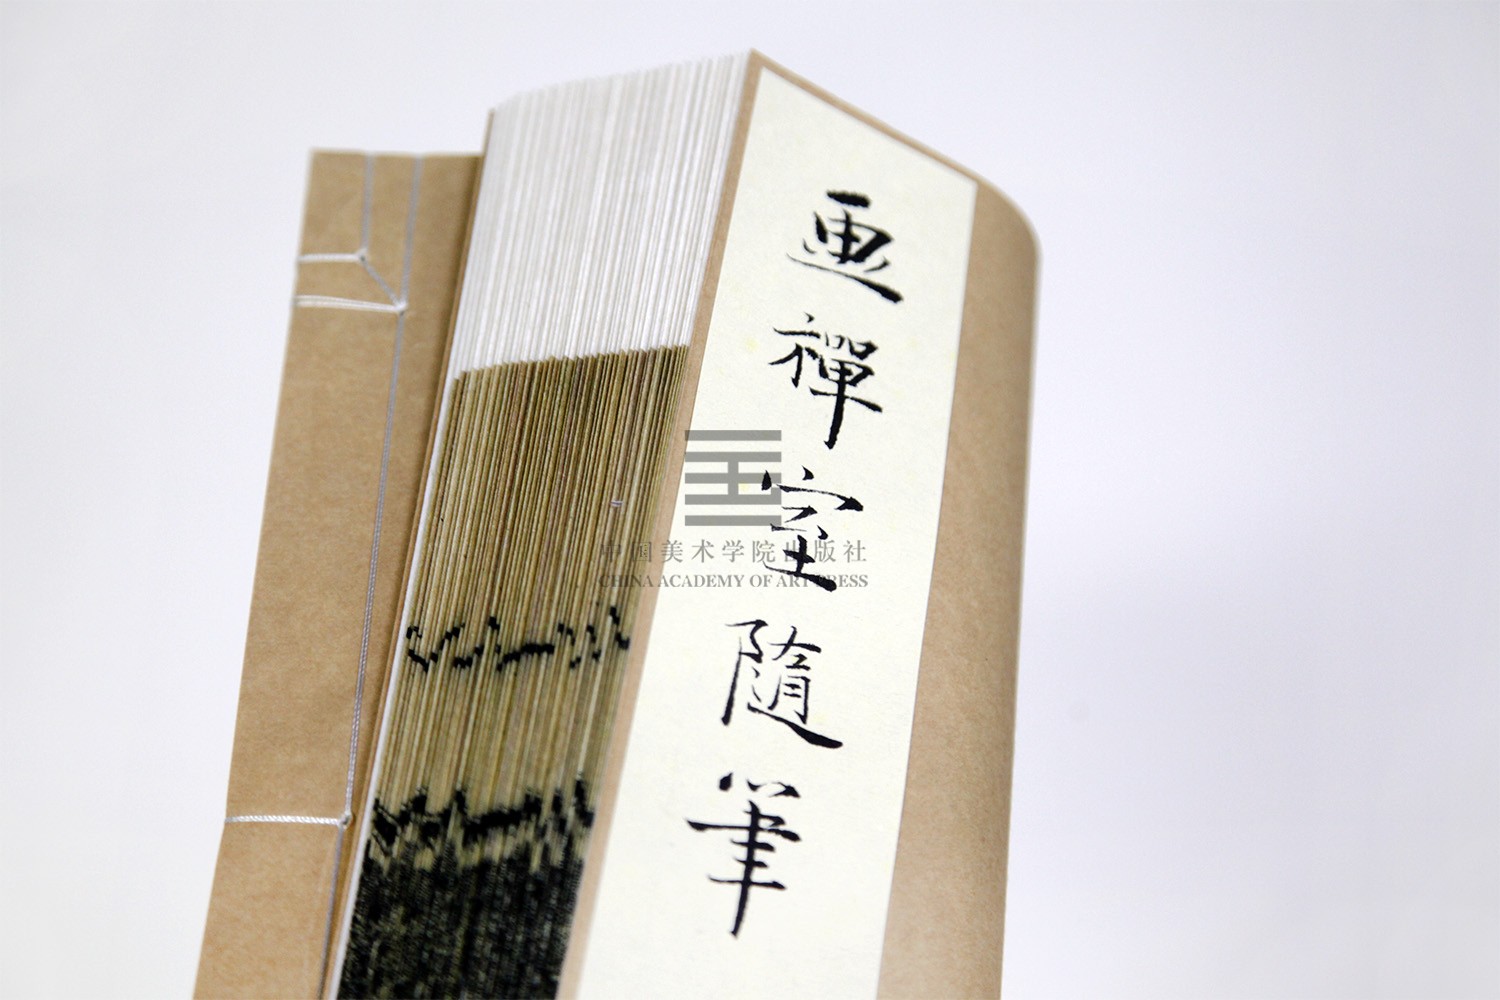 画禪室隨筆
中国美术学院出版社
CHINA ACADEMY OF ART PRESS